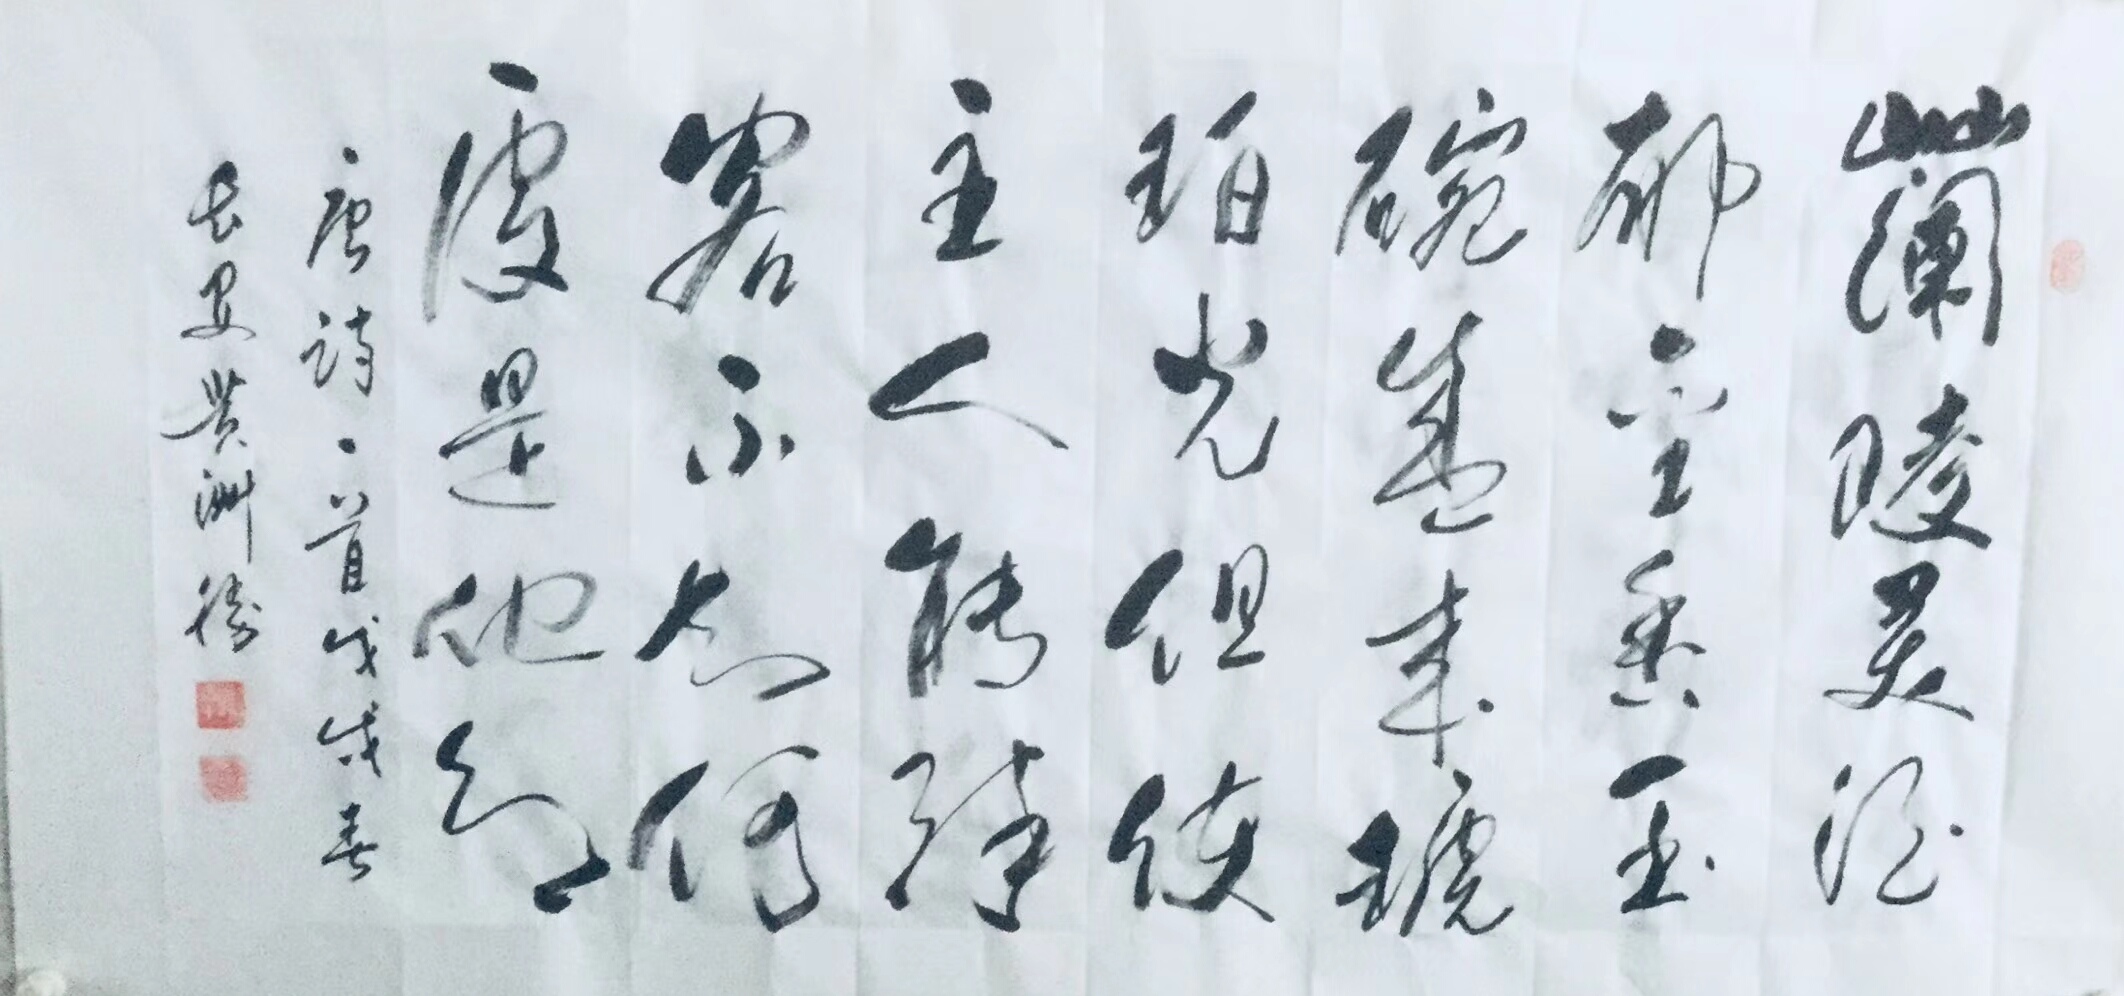 蘭陵美酒
郁金香玉
碗盛来琥
珀光但使
主人能醉
客不知何
處是他鄉
唐詩一首戊戌春
长安黄洲